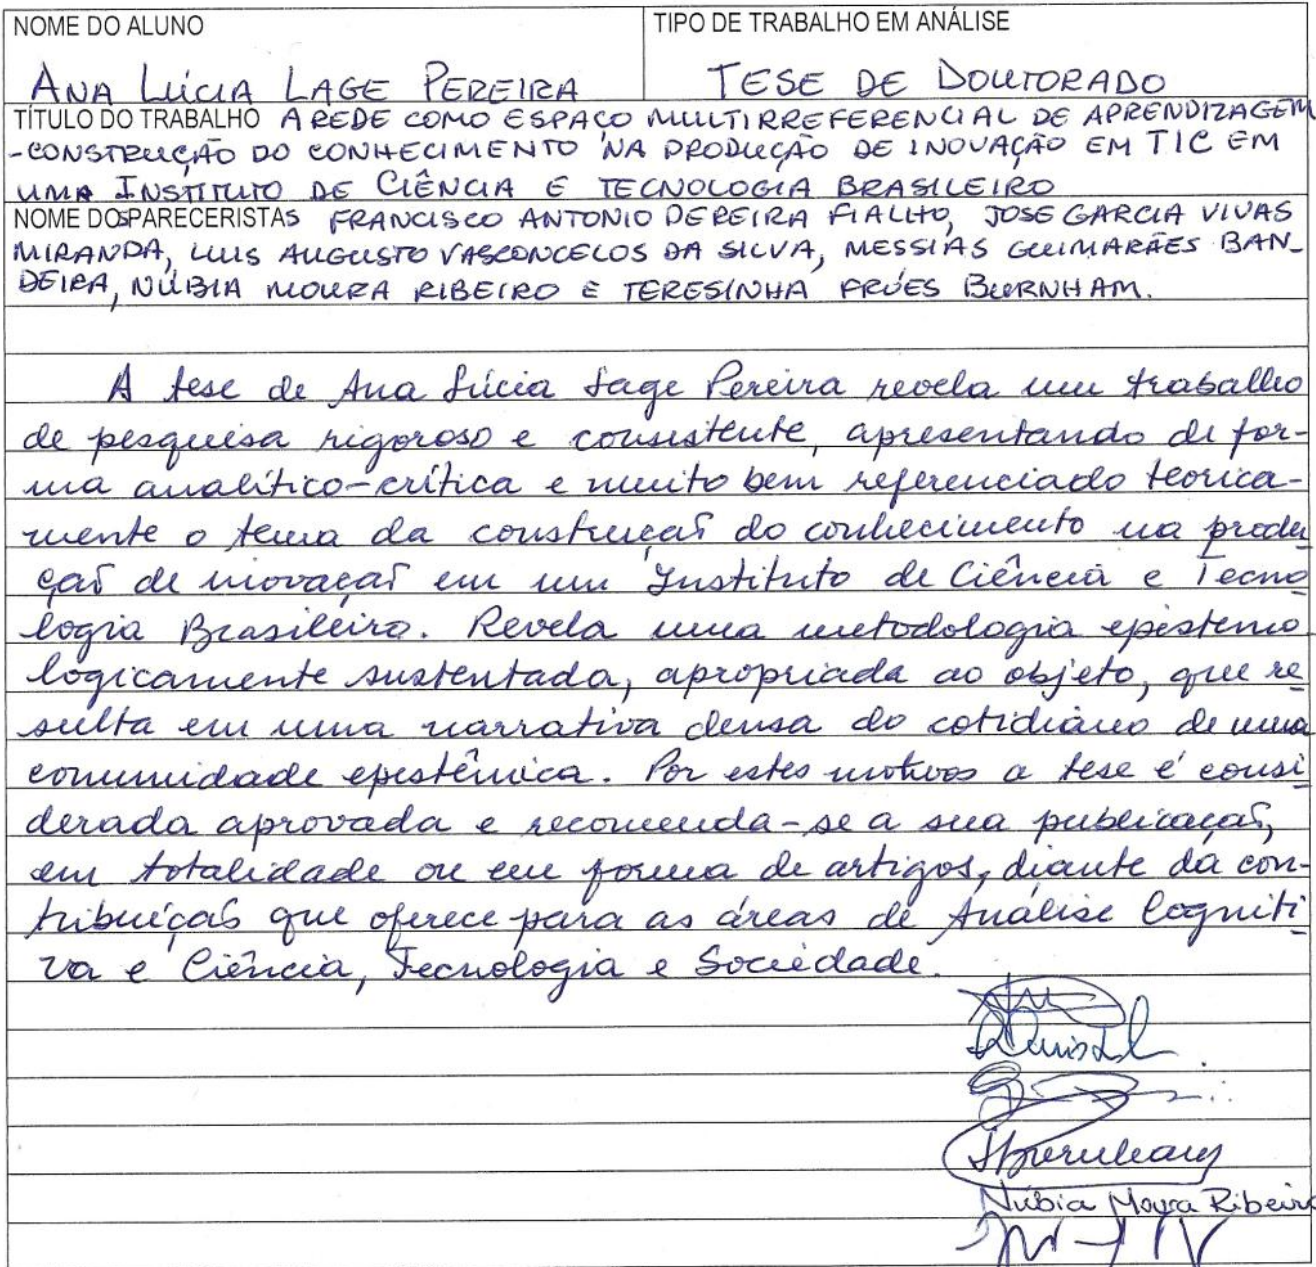 NOME DO ALUNO
TIPO DE TRABALHO EM ANÁLISE
ANA LÚCIA LAGE PEREIRA
TESE DE DOUTORADO
TÍTULO DO TRABALHO A REDE COMO ESPAÇO MULTIRREFERENCIAL DE APRENDIZAGEM
-CONSTRUÇÃO DO CONHECIMENTO NA PRODUÇÃO DE INOVAÇÃO EM TIC EM
UMA INSTITUTO DE CIÊNCIA E TECNOLOGIA BRASILEIRO
NOME DOS PARECERISTAS FRANCISCO ANTONIO PEREIRA FIALHO, JOSE GARCIA VIVAS
MIRANDA, LUIS AUGUSTO VASCONCELOS DA SILVA, MESSIAS GUIMARÃES BAN-
DEIRA, NÚBIA MOURA RIBEIRO E TERESINHA FRÓES BURNHAM.
A tese de Ana Lúcia Lage Pereira revela um trabalho
de pesquisa rigoroso e consistente, apresentando de for-
ma analítico-crítica e muito bem referenciado teorica-
mente o tema da construção do conhecimento na produ
ção de inovação em um Instituto de Ciência e Tecno
logia Brasileiro. Revela uma metodologia epistemo
logicamente sustentada, apropriada ao objeto, que re
sulta em uma narrativa densa do cotidiano de uma
comunidade epistêmica. Por estes motivos a tese é consi
derada aprovada e recomenda-se a sua publicação,
em totalidade ou em forma de artigos, diante da con-
tribuição que oferece para as áreas de Análise Cogniti
va e Ciência, Tecnologia e Sociedade.
Núbia Moura Ribeiro